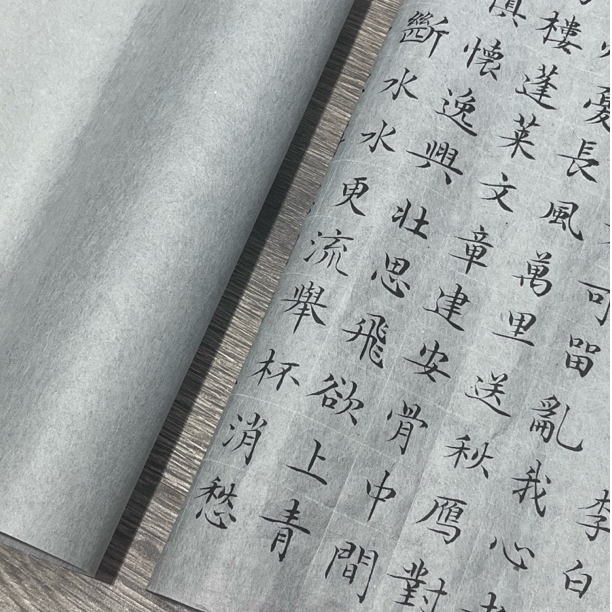 李白
可留亂我心
憂長風萬里送秋鴈對
樓蓬萊文章建安骨中間
懷逸興壯思飛欲上青
斷水水更流舉杯消愁